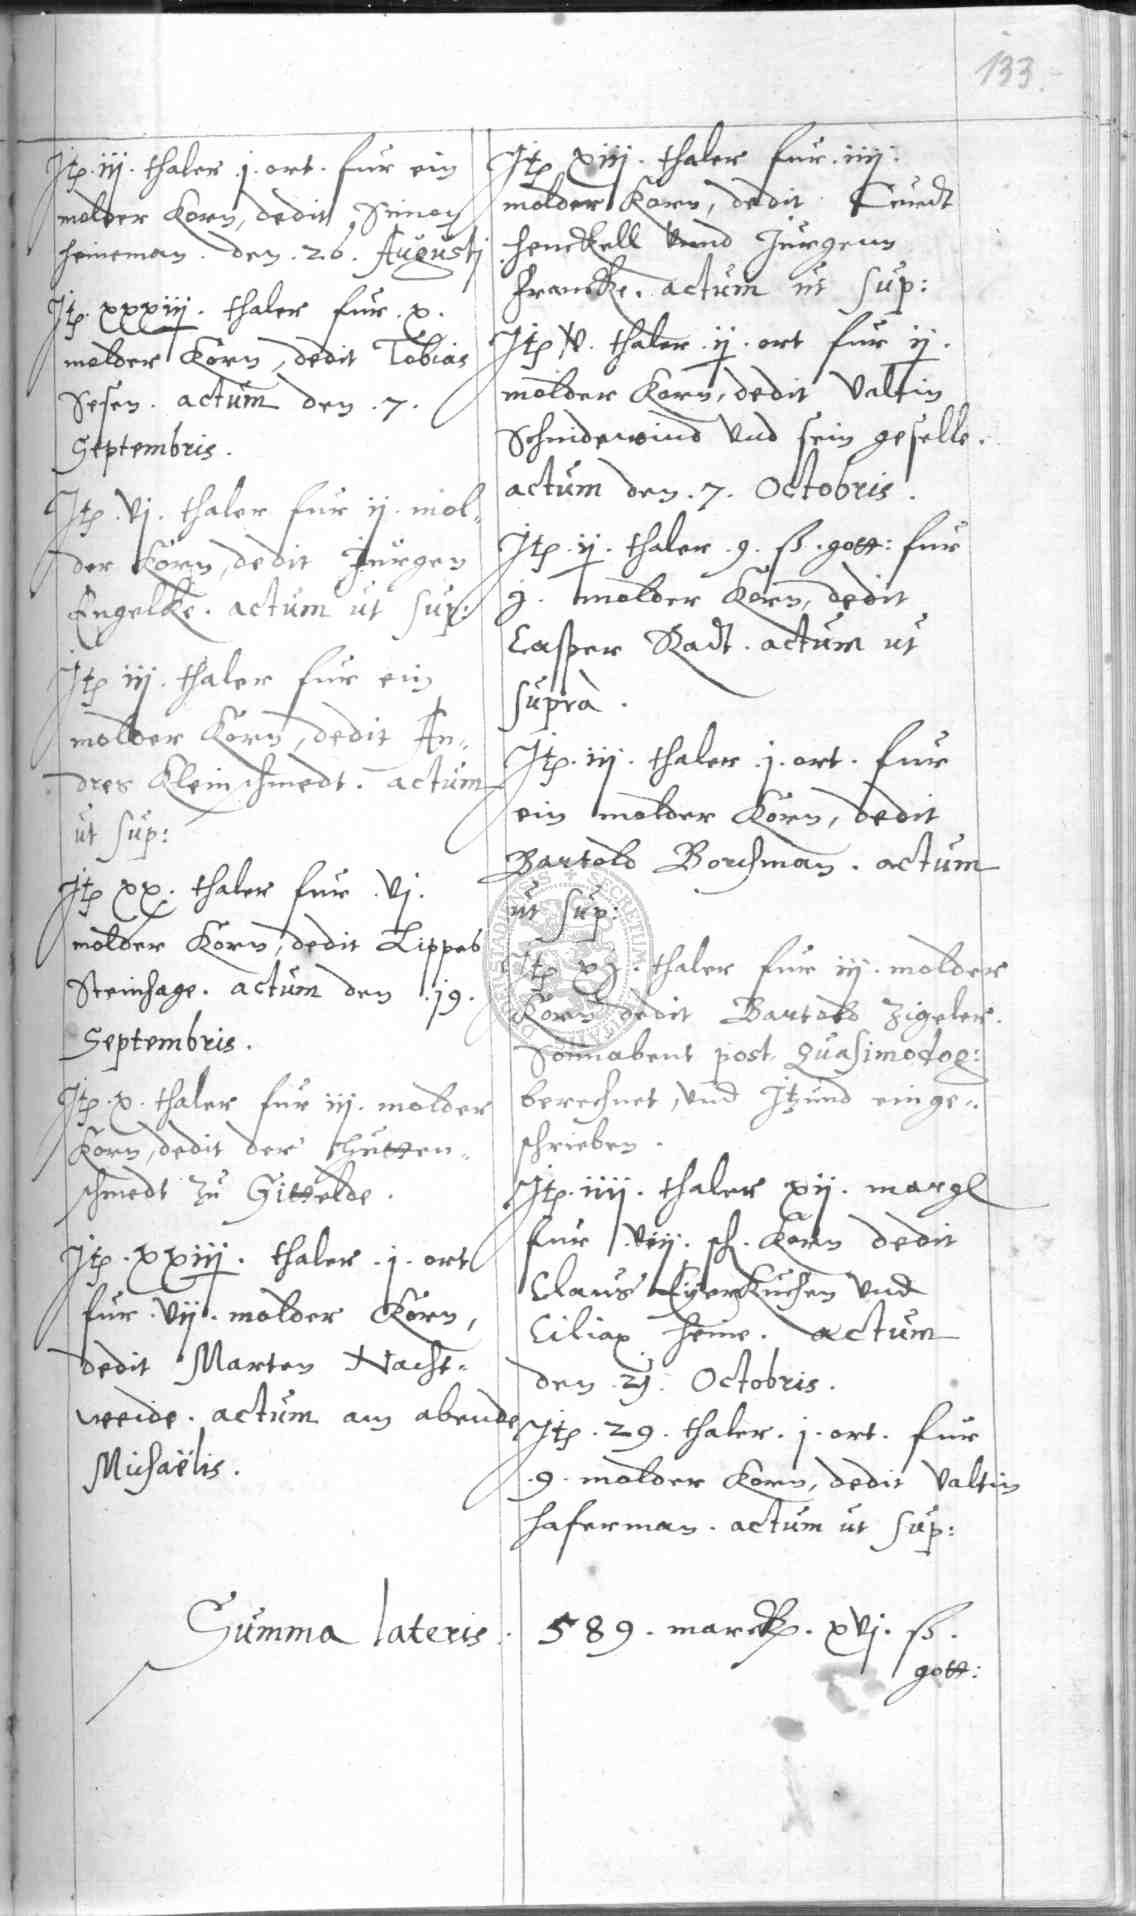 133.
Itp. iij. thaler. j. ort. fur ein
molder Korn, dedit Simon
heineman. den. 26. Augustj
Itp. xxxiij. thaler fur. x.
molder Korn, dedit Tobias
Sesen. actum den. 7.
Septembris.
Itp. vj. thaler fur ij. mol=
der Korn, dedit Jurgen
Engelke. actum ut sup:
Itp iij. thaler fur ein
molder Korn, dedit An=
dres Kleinschmedt. actum
ut sup:
Itp xx. thaler fur. vj.
molder Korn, dedit Lippes
Steinhage. actum den. 19.
Septembris.
Itp. x. thaler fur iij. molder
Korn, dedit der Hutten=
schmedt zu Gittelde.
Itp. xxiij. thaler. j. ort
fur. vij. molder Korn,
dedit Marten Nacht=
weide. actum am abende
Michaëlis.
Itp xiij. thaler fur. iiij.
molder Korn, dedit Curdt
henckell vnnd Jurgenn
Francke. actum ut sup:
Itp v. thaler. ij. ort fur ij.
molder Korn, dedit Valtin
Schnidewind vnd sein geselle.
actum den. 7. Octobris.
Itp. ij. thaler. 9. ß. gott: fur
j. molder Korn, dedit
Casper Radt. actum ut
suprà.
Itp. iij. thaler. j. ort. fur
ein molder Korn, dedit
Bartold Borchman. actum
ut sup:
Itp xj. thaler fur iij. molder
Korn dedit Bartold Zigeler.
Sonnabent post Quasimodog:
berechnet, vnd Itzund einge=
schrieben.
Itp. iiij. thaler xij. margl
fur viij. sch. Korn dedit
Claus Eyerkuchen vnd
Ciliax heine. actum
den. 21. Octobris.
Itp. 29. thaler. j. ort. fur
.9. molder Korn, dedit Valtin
haferman. actum ut sup:
Summa lateris. 589. marck. xvj. ß.
gott: